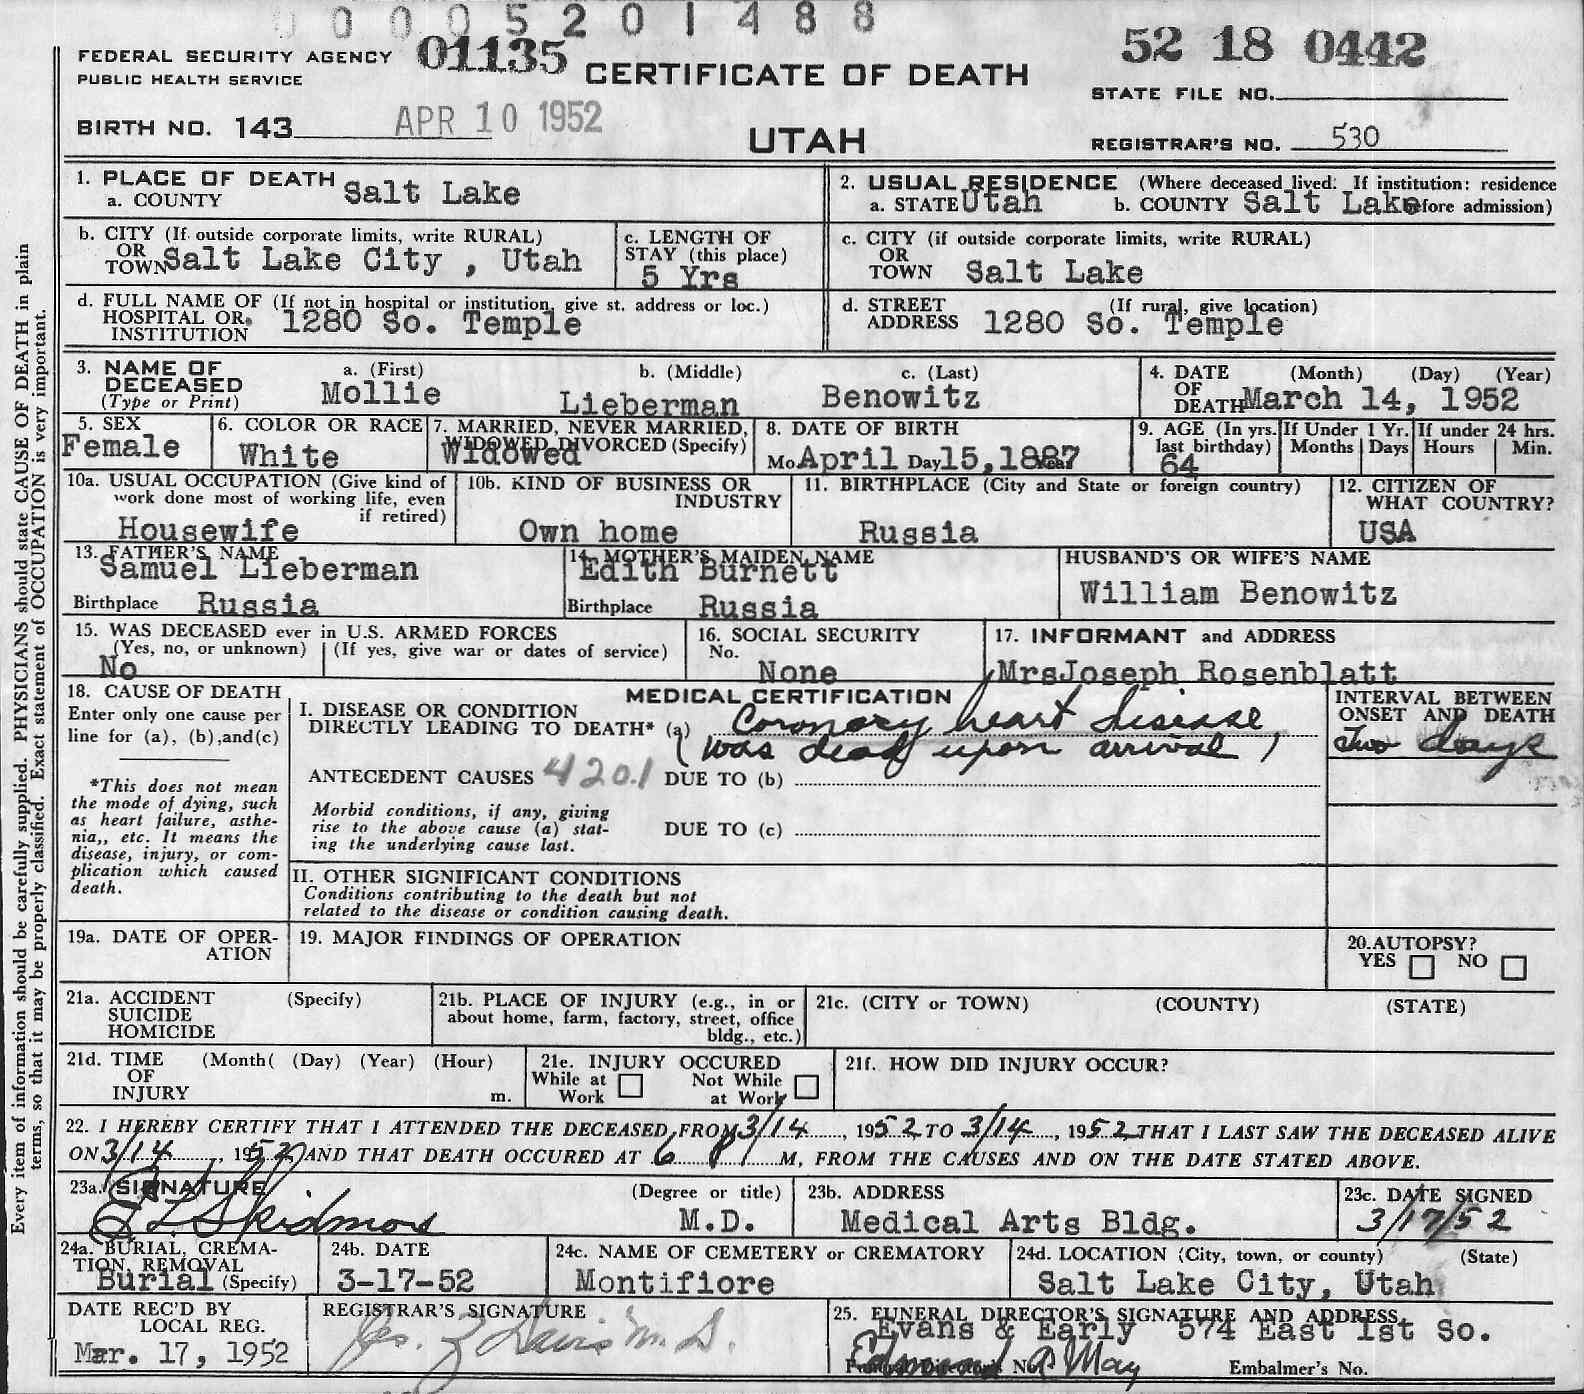 0 0 0 0 5 2 0 1 4 8 8
FEDERAL SECURITY AGENCY 01135 CERTIFICATE OF DEATH 52 18 0442
PUBLIC HEALTH SERVICE
STATE FILE NO.
BIRTH NO. 143 APR 10 1952 UTAH REGISTRAR'S NO. 530
1. PLACE OF DEATH
a. COUNTY Salt Lake
2. USUAL RESIDENCE (Where deceased lived: If institution: residence
a. STATE Utah b. COUNTY Salt Lake before admission)
b. CITY (If outside corporate limits, write RURAL)
OR
TOWN Salt Lake City , Utah
c. LENGTH OF
STAY (this place)
5 Yrs
c. CITY (if outside corporate limits, write RURAL)
OR
TOWN Salt Lake
d. FULL NAME OF (If not in hospital or institution, give st. address or loc.)
HOSPITAL OR
INSTITUTION 1280 So. Temple
d. STREET (If rural, give location)
ADDRESS 1280 So. Temple
3. NAME OF
DECEASED
(Type or Print)
a. (First) b. (Middle) c. (Last)
Mollie Lieberman Benowitz
4. DATE (Month) (Day) (Year)
OF
DEATH March 14, 1952
5. SEX
Female
6. COLOR OR RACE
White
7. MARRIED, NEVER MARRIED,
WIDOWED, DIVORCED (Specify)
Widowed
8. DATE OF BIRTH
Mo April Day 15, Year 1887
9. AGE (In yrs. last birthday)
64
If Under 1 Yr.
Months Days
If under 24 hrs.
Hours Min.
10a. USUAL OCCUPATION (Give kind of
work done most of working life, even
if retired)
Housewife
10b. KIND OF BUSINESS OR
INDUSTRY
Own home
11. BIRTHPLACE (City and State or foreign country)
Russia
12. CITIZEN OF
WHAT COUNTRY?
USA
13. FATHER'S NAME
Samuel Lieberman
Birthplace Russia
14. MOTHER'S MAIDEN NAME
Edith Burnett
Birthplace Russia
HUSBAND'S OR WIFE'S NAME
William Benowitz
15. WAS DECEASED ever in U.S. ARMED FORCES
(Yes, no, or unknown) (If yes, give war or dates of service)
No
16. SOCIAL SECURITY
No.
None
17. INFORMANT and ADDRESS
MrsJoseph Rosenblatt
18. CAUSE OF DEATH
Enter only one cause per
line for (a), (b),and(c)
*This does not mean
the mode of dying, such
as heart failure, asthe-
nia,, etc. It means the
disease, injury, or com-
plication which caused
death.
MEDICAL CERTIFICATION
I. DISEASE OR CONDITION
DIRECTLY LEADING TO DEATH* (a) Coronary heart disease
(was dead upon arrival)
ANTECEDENT CAUSES 420.1 DUE TO (b)
Morbid conditions, if any, giving
rise to the above cause (a) stat-
ing the underlying cause last.
DUE TO (c)
INTERVAL BETWEEN
ONSET AND DEATH
Two days
II. OTHER SIGNIFICANT CONDITIONS
Conditions contributing to the death but not
related to the disease or condition causing death.
19a. DATE OF OPER-
ATION
19. MAJOR FINDINGS OF OPERATION
20. AUTOPSY?
YES NO
21a. ACCIDENT (Specify)
SUICIDE
HOMICIDE
21b. PLACE OF INJURY (e.g., in or
about home, farm, factory, street, office
bldg., etc.)
21c. (CITY or TOWN) (COUNTY) (STATE)
21d. TIME (Month( (Day) (Year) (Hour)
OF
INJURY m.
21e. INJURY OCCURED
While at Work Not While at Work
21f. HOW DID INJURY OCCUR?
22. I HEREBY CERTIFY THAT I ATTENDED THE DECEASED FROM 3/14, 1952 TO 3/14, 1952 THAT I LAST SAW THE DECEASED ALIVE
ON 3/14, 1952 AND THAT DEATH OCCURED AT 6 P M, FROM THE CAUSES AND ON THE DATE STATED ABOVE.
23a. SIGNATURE (Degree or title)
Skidmore M.D.
23b. ADDRESS
Medical Arts Bldg.
23c. DATE SIGNED
3/17/52
24a. BURIAL, CREMA-
TION, REMOVAL
Burial (Specify)
24b. DATE
3-17-52
24c. NAME OF CEMETERY or CREMATORY
Montifiore
24d. LOCATION (City, town, or county) (State)
Salt Lake City, Utah
DATE REC'D BY
LOCAL REG.
Mar. 17, 1952
REGISTRAR'S SIGNATURE
Davis M. D.
25. FUNERAL DIRECTOR'S SIGNATURE AND ADDRESS
Evans & Early 574 East 1st So.
May
Funeral Director's No. Embalmer's No.
Every item of information should be carefully supplied. PHYSICIANS should state CAUSE OF DEATH in plain
terms, so that it may be properly classified. Exact statement of OCCUPATION is very important.